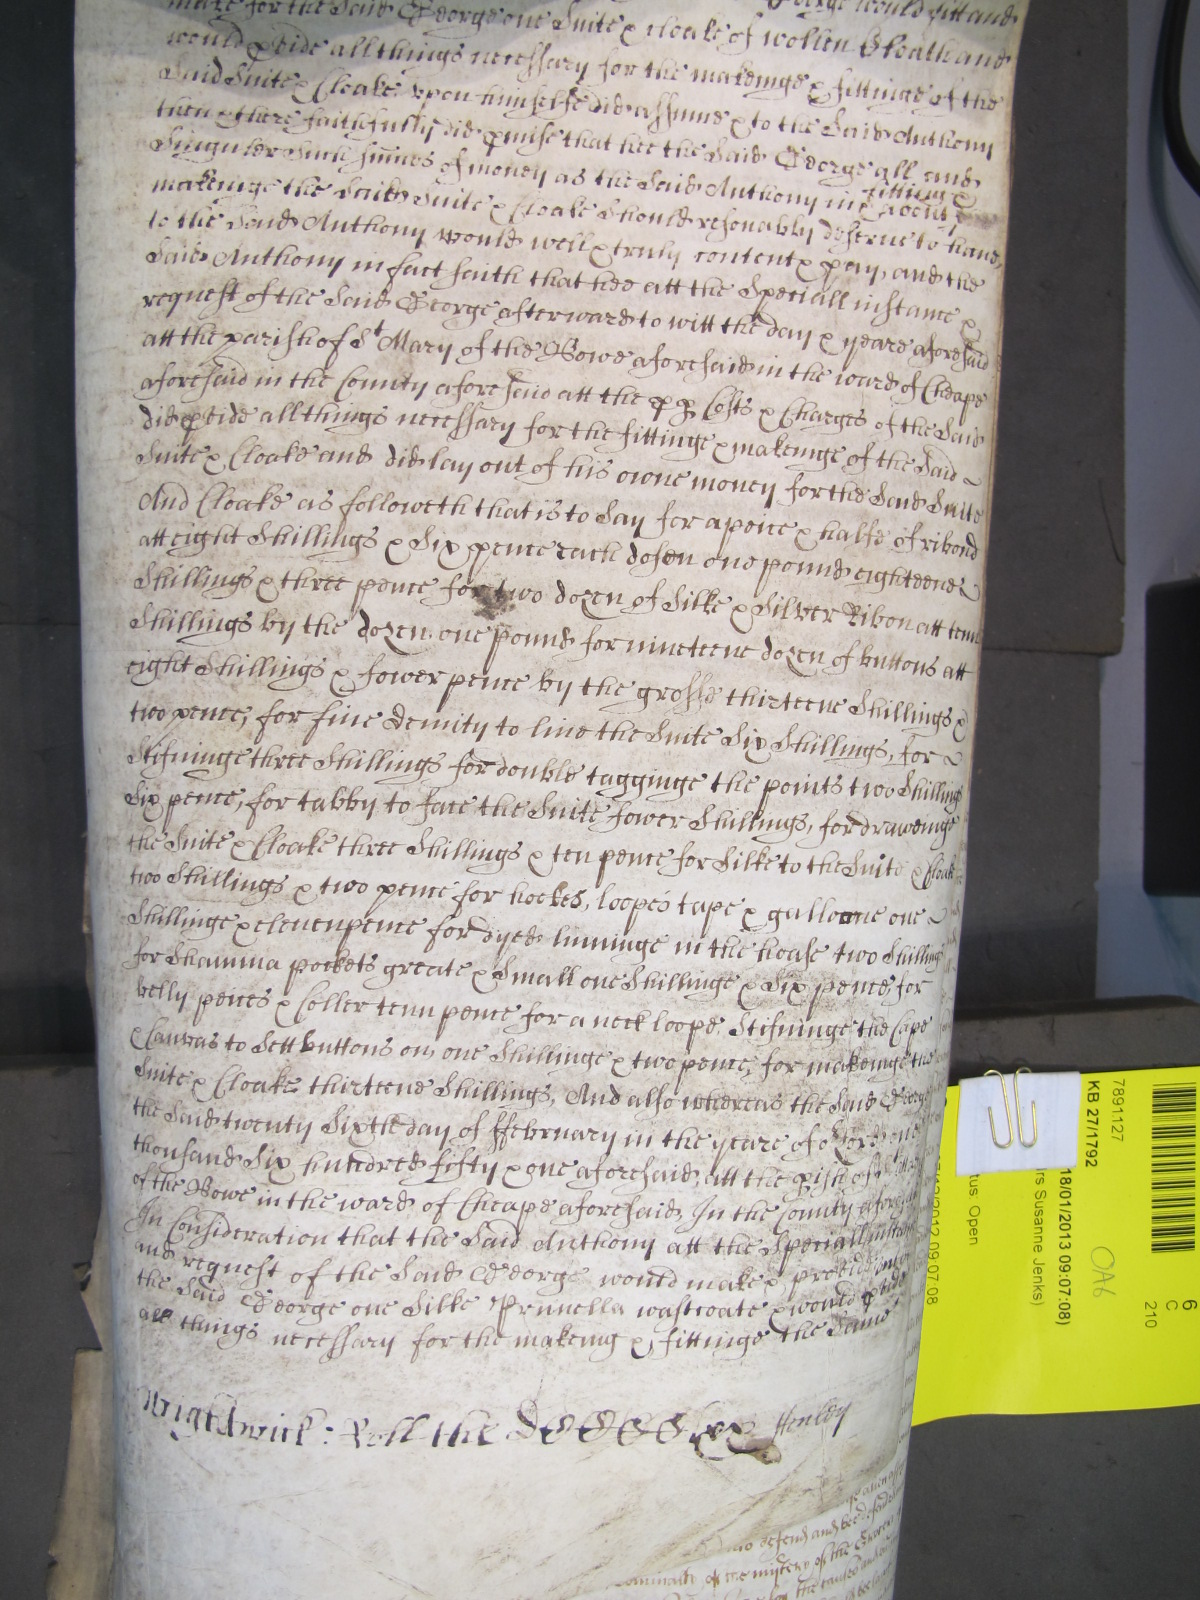 make for the said George one Suite & cloake of wollen Cloath and
would pvide all things necessary for the makeinge & fittinge of the
said Suite & Cloake, upon himselfe did assume & to the said Anthony
then & there faithfully did pmise that hee the said George all and
singuler such sumes of money as the said Anthony in fitting &
makeinge the said Suite & Cloake should resonably deserve to have,
to the said Anthony would well & truly content & pay, and the
said Anthony in fact saith that hee att the Speciall instance &
request of the said George afterward to witt the day & yeare aforesaid
att the parish of St Mary of the Bowe aforesaid in the ward of Cheape
aforesaid in the County aforesaid att the pp Costs & Charges of the said
did pvide all things necessary for the fittinge & makeinge of the said
Suite & Cloake and did lay out of his owne money for the said Suite
And Cloake as followeth that is to say for a peice & halfe of ribond
att eight shillings & six pence each dosen one pound eighteene
shillings & three pence for two dozen of silke & silver Ribon att tenn
shillings by the dozen one pound for nineteene dozen of buttons att
eight shillings & fower pence by the grosse thirteene shillings &
two pence, for fine demity to line the Suite six shillings, for
stifninge three shillings for double tagginge the points two shillings
six pence, for tabby to face the Suite fower shillings, for draweinge
the Suite & Cloake three shillings & ten pence for silke to the Suite & Cloake
two shillings & two pence for hookes, loopes tape & galloone one
shillinge & eleven pence for dyed lininge in the hease two shillings
for Shamma pockets greate & small one shillinge & six pence, for
belly peices & Coller tenn pence for a neck loope, stifninge the Cape
& Canvas to sett buttons on, one shillinge & two pence, for makeinge the
Suite & Cloake thirteene shillings, And also whereas the said George
the said twenty sixth day of ffebruary in the yeare of or Lord one
thousand six hundred fifty & one aforesaid, att the pish of
of the Bowe in the ward of Cheape aforesaid, In the County aforesaid
In Consideration that the said Anthony att the Speciall instance
and request of the said George would make & provide for
the said George one silke Prunella wastcoate & would pvide
all things necessary for the making & fittinge the same
Wrightwick: Roll the Henley
KB 27/1792
7891127
18/01/2013 09:07:08)
rs Susanne Jenks)
tus: Open
2012 09:07:08
OA6
6
C
210
defend and
mistery of the